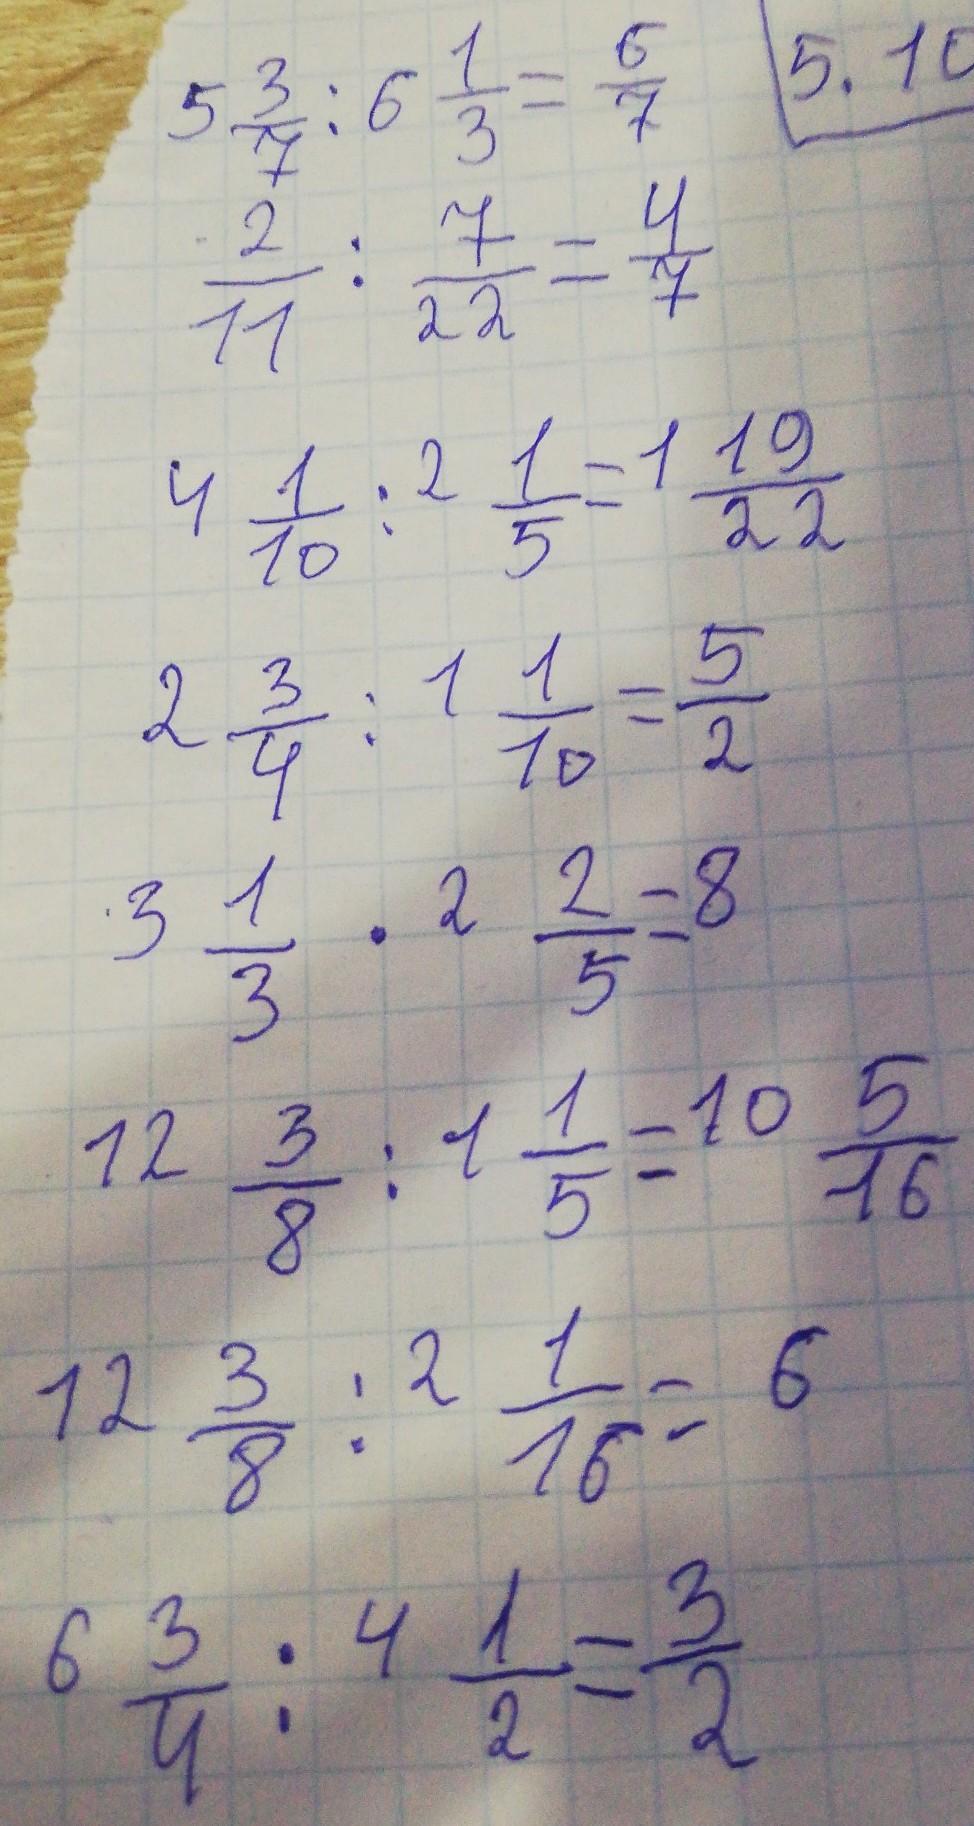 5 3/7 : 6 1/3 = 6/7
5. 10
2/11 : 7/22 = 4/7
4 1/10 : 2 1/5 = 1 19/22
2 3/4 : 1 1/10 = 5/2
3 1/3 · 2 2/5 = 8
12 3/8 : 1 1/5 = 10 5/16
12 3/8 : 2 1/16 = 6
6 3/4 : 4 1/2 = 3/2